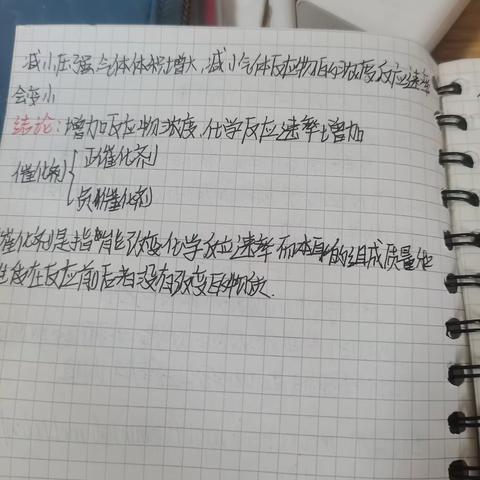 减小压强气体体积增大,减小气体反应物的浓度反应速率
会变小
结论:增加反应物浓度,化学反应速率增加
催化剂{正催化剂
负催化剂
催化剂是指能改变化学反应速率而本身的组成质量化
性质在反应前后都没有改变的物质.